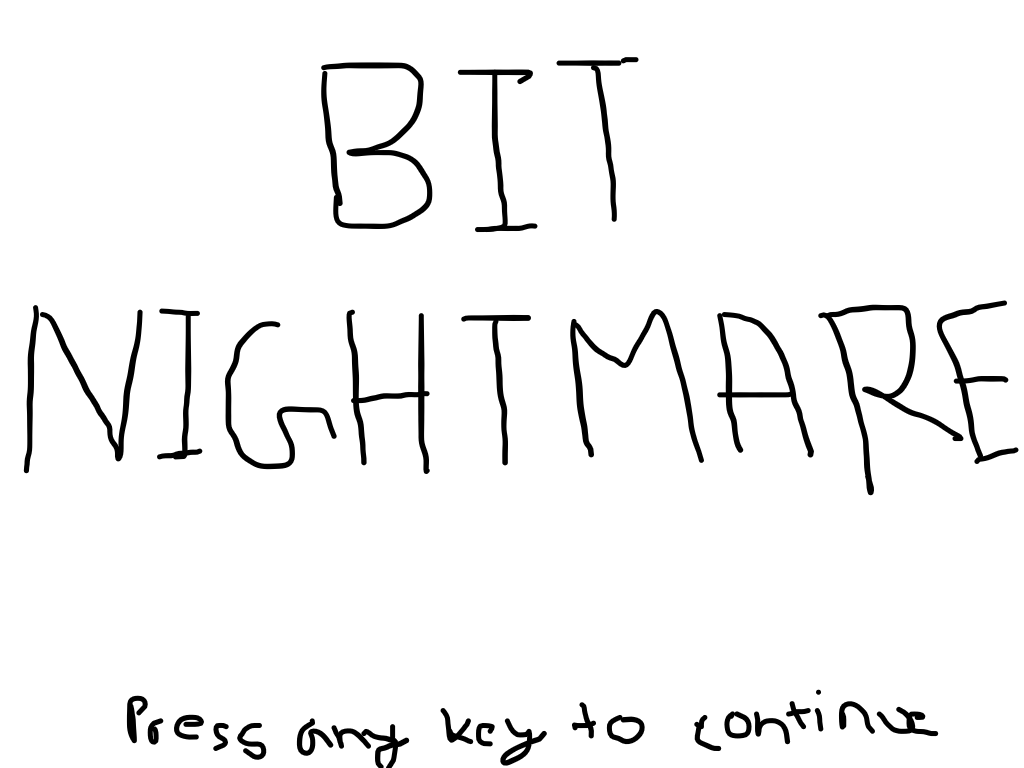 BIT
NIGHTMARE
Press any key to continue